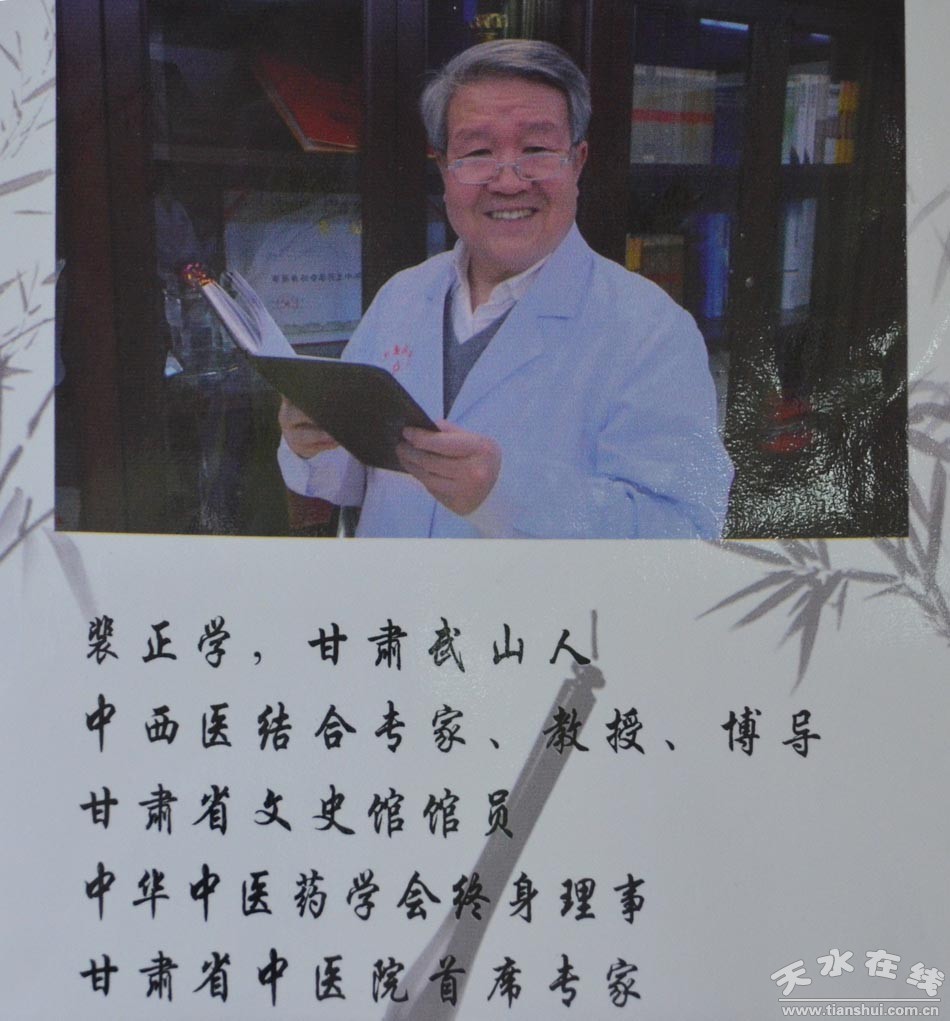 裴正学，甘肃武山人
中西医结合专家、教授、博导
甘肃省文史馆馆员
中华中医药学会终身理事
甘肃省中医院首席专家
天水在线
www.tianshui.com.cn